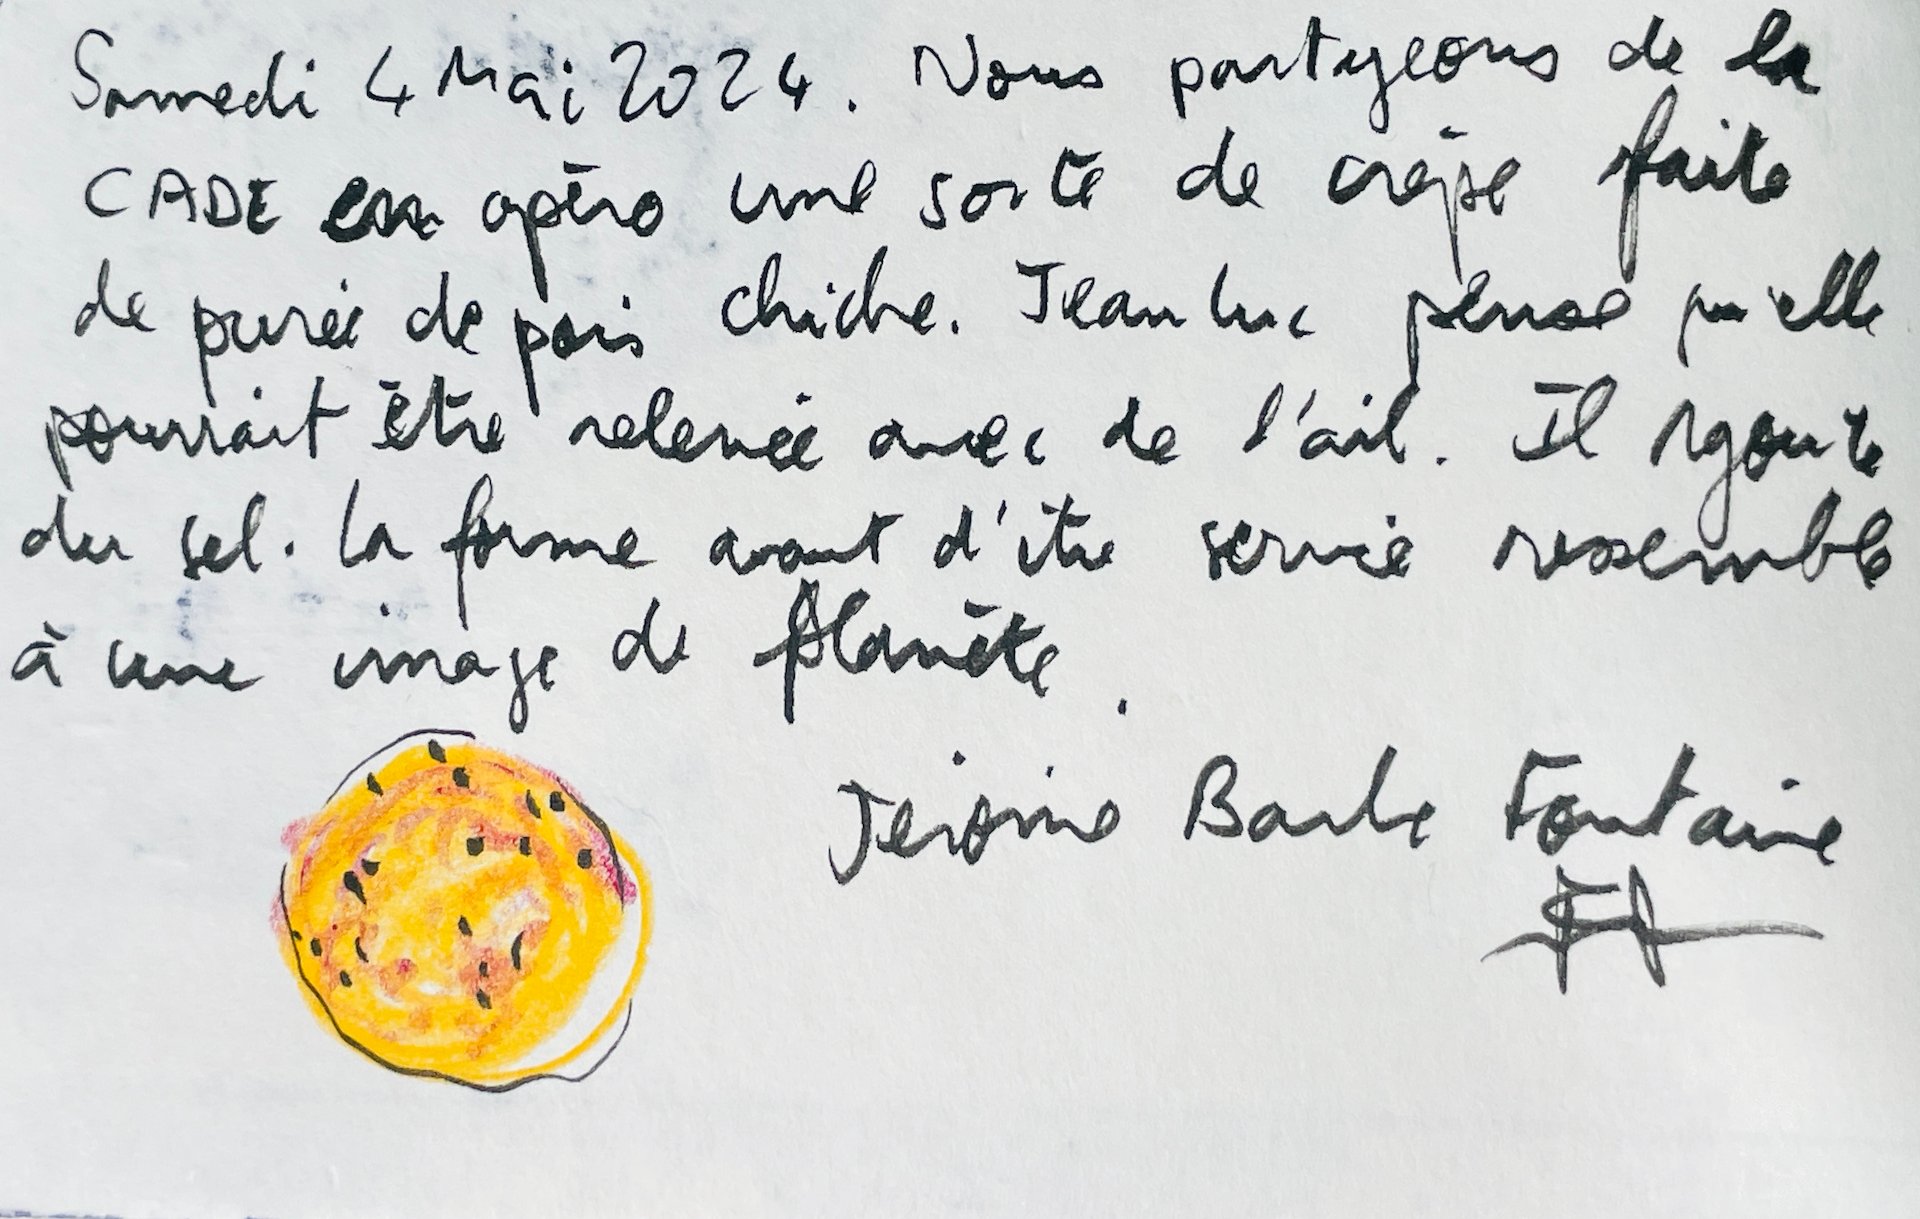 Samedi 4 Mai 2024. Nous partageons de la
CADE en apéro une sorte de crêpe faite
de purée de pois chiche. Jean Luc pense qu'elle
pourrait être relevée avec de l'ail. Il rajoute
du sel. La forme avant d'être servie ressemble
à une image de planète.
Jérôme Barbe Fontaine